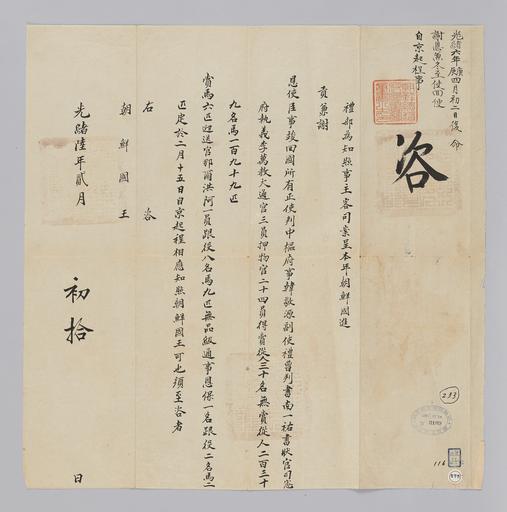 光緒六年庚辰四月初二日復 命
謝恩兼冬至使回便
自京起程事
咨
禮部為知照事主客司案呈本年朝鮮國進
貢兼謝
恩使臣事竣回國所有正使判中樞府事韓敬源副使禮曹判書南一祐書狀官司憲
府執義李萬教大通官三員押物官二十四員得賞從人三十名無賞從人二百三十
九名馬一百九十九匹
賞馬六匹迎送官那爾洪阿一員跟役八名馬九匹無品級通事恩保一名跟役二名馬二
匹定於二月十五日自京起程相應知照朝鮮國王可也須至咨者
右 咨
朝 鮮 國 王
光緒陸年貳月 初拾 日
233
116